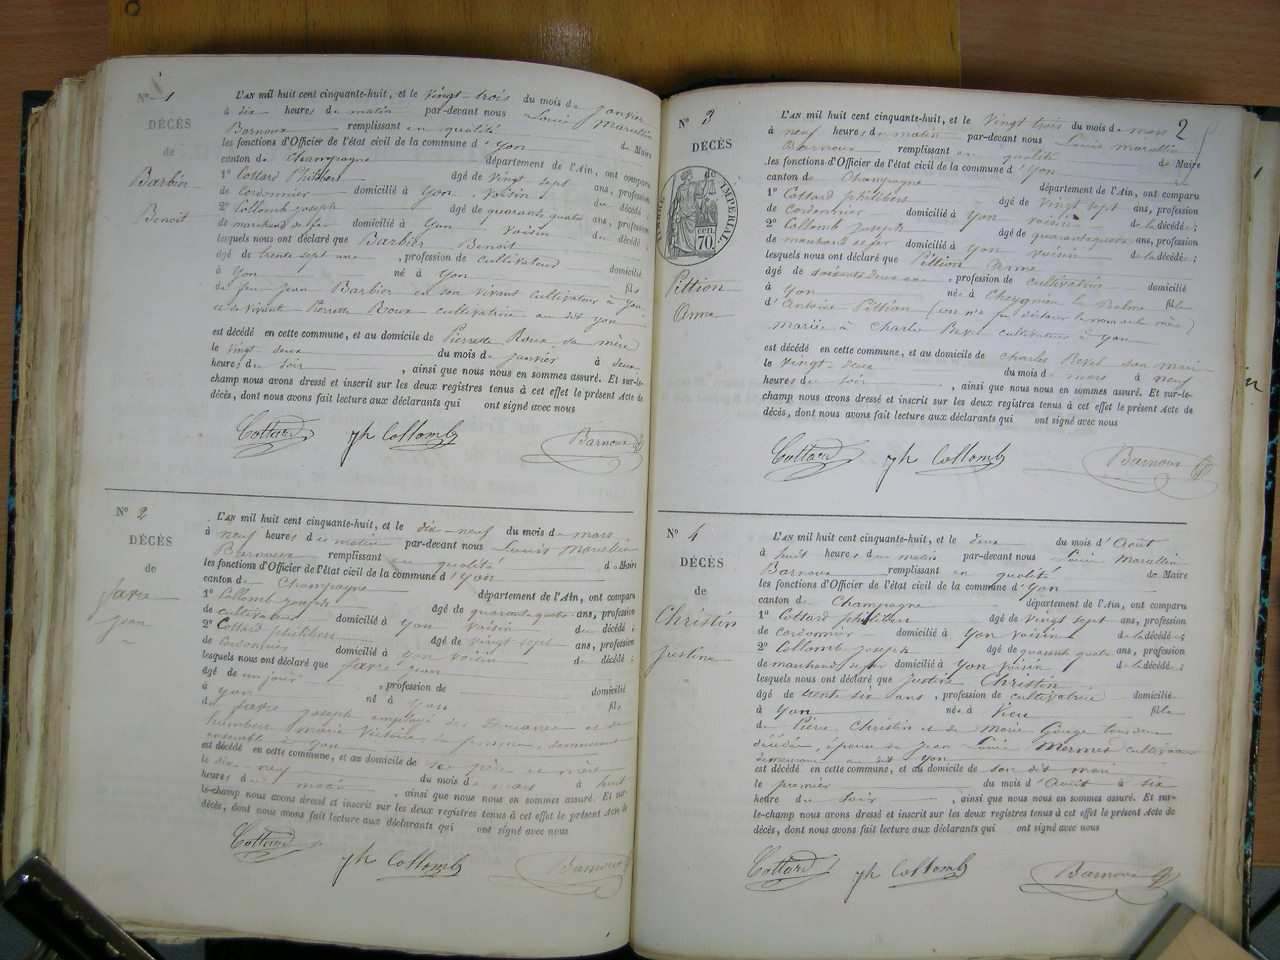 N° 1
DÉCÈS
de
Barbier
Benoit
L'AN mil huit cent cinquante-huit, et le vingt-trois du mois de Janvier
à dix heures du matin par-devant nous Louis Marcellin
Barnoux remplissant en qualité de Maire
les fonctions d'Officier de l'état civil de la commune d'Yon
canton de Champagne département de l'Ain, ont comparu
1° Cottard Philibert âgé de vingt sept ans, profession
de cordonnier domicilié à Yon voisin du décédé ;
2° Collomb joseph âgé de quarante quatre ans, profession
de marchand de fer domicilié à Yon voisin du décédé
lesquels nous ont déclaré que Barbier Benoit
âgé de trente sept ans , profession de cultivateur domicilié
à Yon né à Yon fils
de feu jean Barbier en son vivant cultivateur à Yon
et de vivant Pierrette Roux cultivatrice au dit yon
est décédé en cette commune, et au domicile de Pierrette Roux sa mère
le vingt deux du mois de janvier à deux
heures du soir , ainsi que nous nous en sommes assuré. Et sur-le-
champ nous avons dressé et inscrit sur les deux registres tenus à cet effet le présent Acte de
décès, dont nous avons fait lecture aux déclarants qui ont signé avec nous
Cottard jh Collomb Barnoux
N° 2
DÉCÈS
de
jean
L'AN mil huit cent cinquante-huit, et le dix-neuf du mois de mars
à neuf heures du matin par-devant nous Louis Marcellin
Barnoux remplissant en qualité de Maire
les fonctions d'Officier de l'état civil de la commune d'Yon
canton de Champagne département de l'Ain, ont comparu
1° Collomb joseph âgé de quarante quatre ans, profession
de cultivateur domicilié à Yon voisin du décédé ;
2° Cottard philibert âgé de vingt sept ans, profession
de cordonnier domicilié à Yon voisin du décédé ;
lesquels nous ont déclaré que jean
âgé de un jour , profession de domicilié
à Yon né à Yon fils
de joseph employé des Douanes et de
humbert marie Victoire sa femme, demeurant
ensemble à Yon
est décédé en cette commune, et au domicile de ses père et mère
le dix neuf du mois de mars à huit
heures du matin , ainsi que nous nous en sommes assuré. Et sur-
le-champ nous avons dressé et inscrit sur les deux registres tenus à cet effet le présent Acte de
décès, dont nous avons fait lecture aux déclarants qui ont signé avec nous
Cottard jh Collomb Barnoux
2
N° 3
DÉCÈS
TIMBRE IMPÉRIAL
70 cen.
Pittion
Anne
L'AN mil huit cent cinquante-huit, et le Vingt trois du mois de mars
à neuf heures du matin par-devant nous Louis Marcellin
Barnoux remplissant en qualité de Maire
les fonctions d'Officier de l'état civil de la commune d'Yon
canton de Champagne département de l'Ain, ont comparu
1° Cottard philibert âgé de vingt sept ans, profession
de Cordonnier domicilié à Yon voisin de la décédé ;
2° Collomb joseph âgé de quarante quatre ans, profession
de marchand de fer domicilié à Yon voisin de la décédé ;
lesquels nous ont déclaré que Pittion Anne
âgé de soixante deux ans , profession de cultivatrice domicilié
à Yon née à Cheygnieu la Balme fille
d'Antoine Pittion (on n'a pu déclarer le nom de la mère)
mariée à Charles Bevel cultivateur à Yon
est décédé en cette commune, et au domicile de Charles Bevel son mari
le vingt-deux du mois de mars à neuf
heures du soir , ainsi que nous nous en sommes assuré. Et sur-le-
champ nous avons dressé et inscrit sur les deux registres tenus à cet effet le présent Acte de
décès, dont nous avons fait lecture aux déclarants qui ont signé avec nous
Cottard jh Collomb Barnoux
N° 4
DÉCÈS
de
Christin
Justine
L'AN mil huit cent cinquante-huit, et le deux du mois d'Août
à huit heures du matin par-devant nous Louis Marcellin
Barnoux remplissant en qualité de Maire
les fonctions d'Officier de l'état civil de la commune d'Yon
canton de Champagne département de l'Ain, ont comparu
1° Cottard philibert âgé de vingt sept ans, profession
de cordonnier domicilié à Yon voisin de la décédé ;
2° Collomb joseph âgé de quarante quatre ans, profession
de marchand de fer domicilié à Yon voisin de la décédé ;
lesquels nous ont déclaré que justine Christin
âgé de trente six ans , profession de cultivatrice domicilié
à Yon née à Vieu fille
de Pierre Christin et de Marie Gouge tous deux
décédés, épouse de jean Louis Mermet cultivateur
demeurant au dit Yon
est décédé en cette commune, et au domicile de son dit mari
le premier du mois d'Août à six
heure du soir , ainsi que nous nous en sommes assuré. Et sur-
le-champ nous avons dressé et inscrit sur les deux registres tenus à cet effet le présent Acte de
décès, dont nous avons fait lecture aux déclarants qui ont signé avec nous
Cottard jh Collomb Barnoux